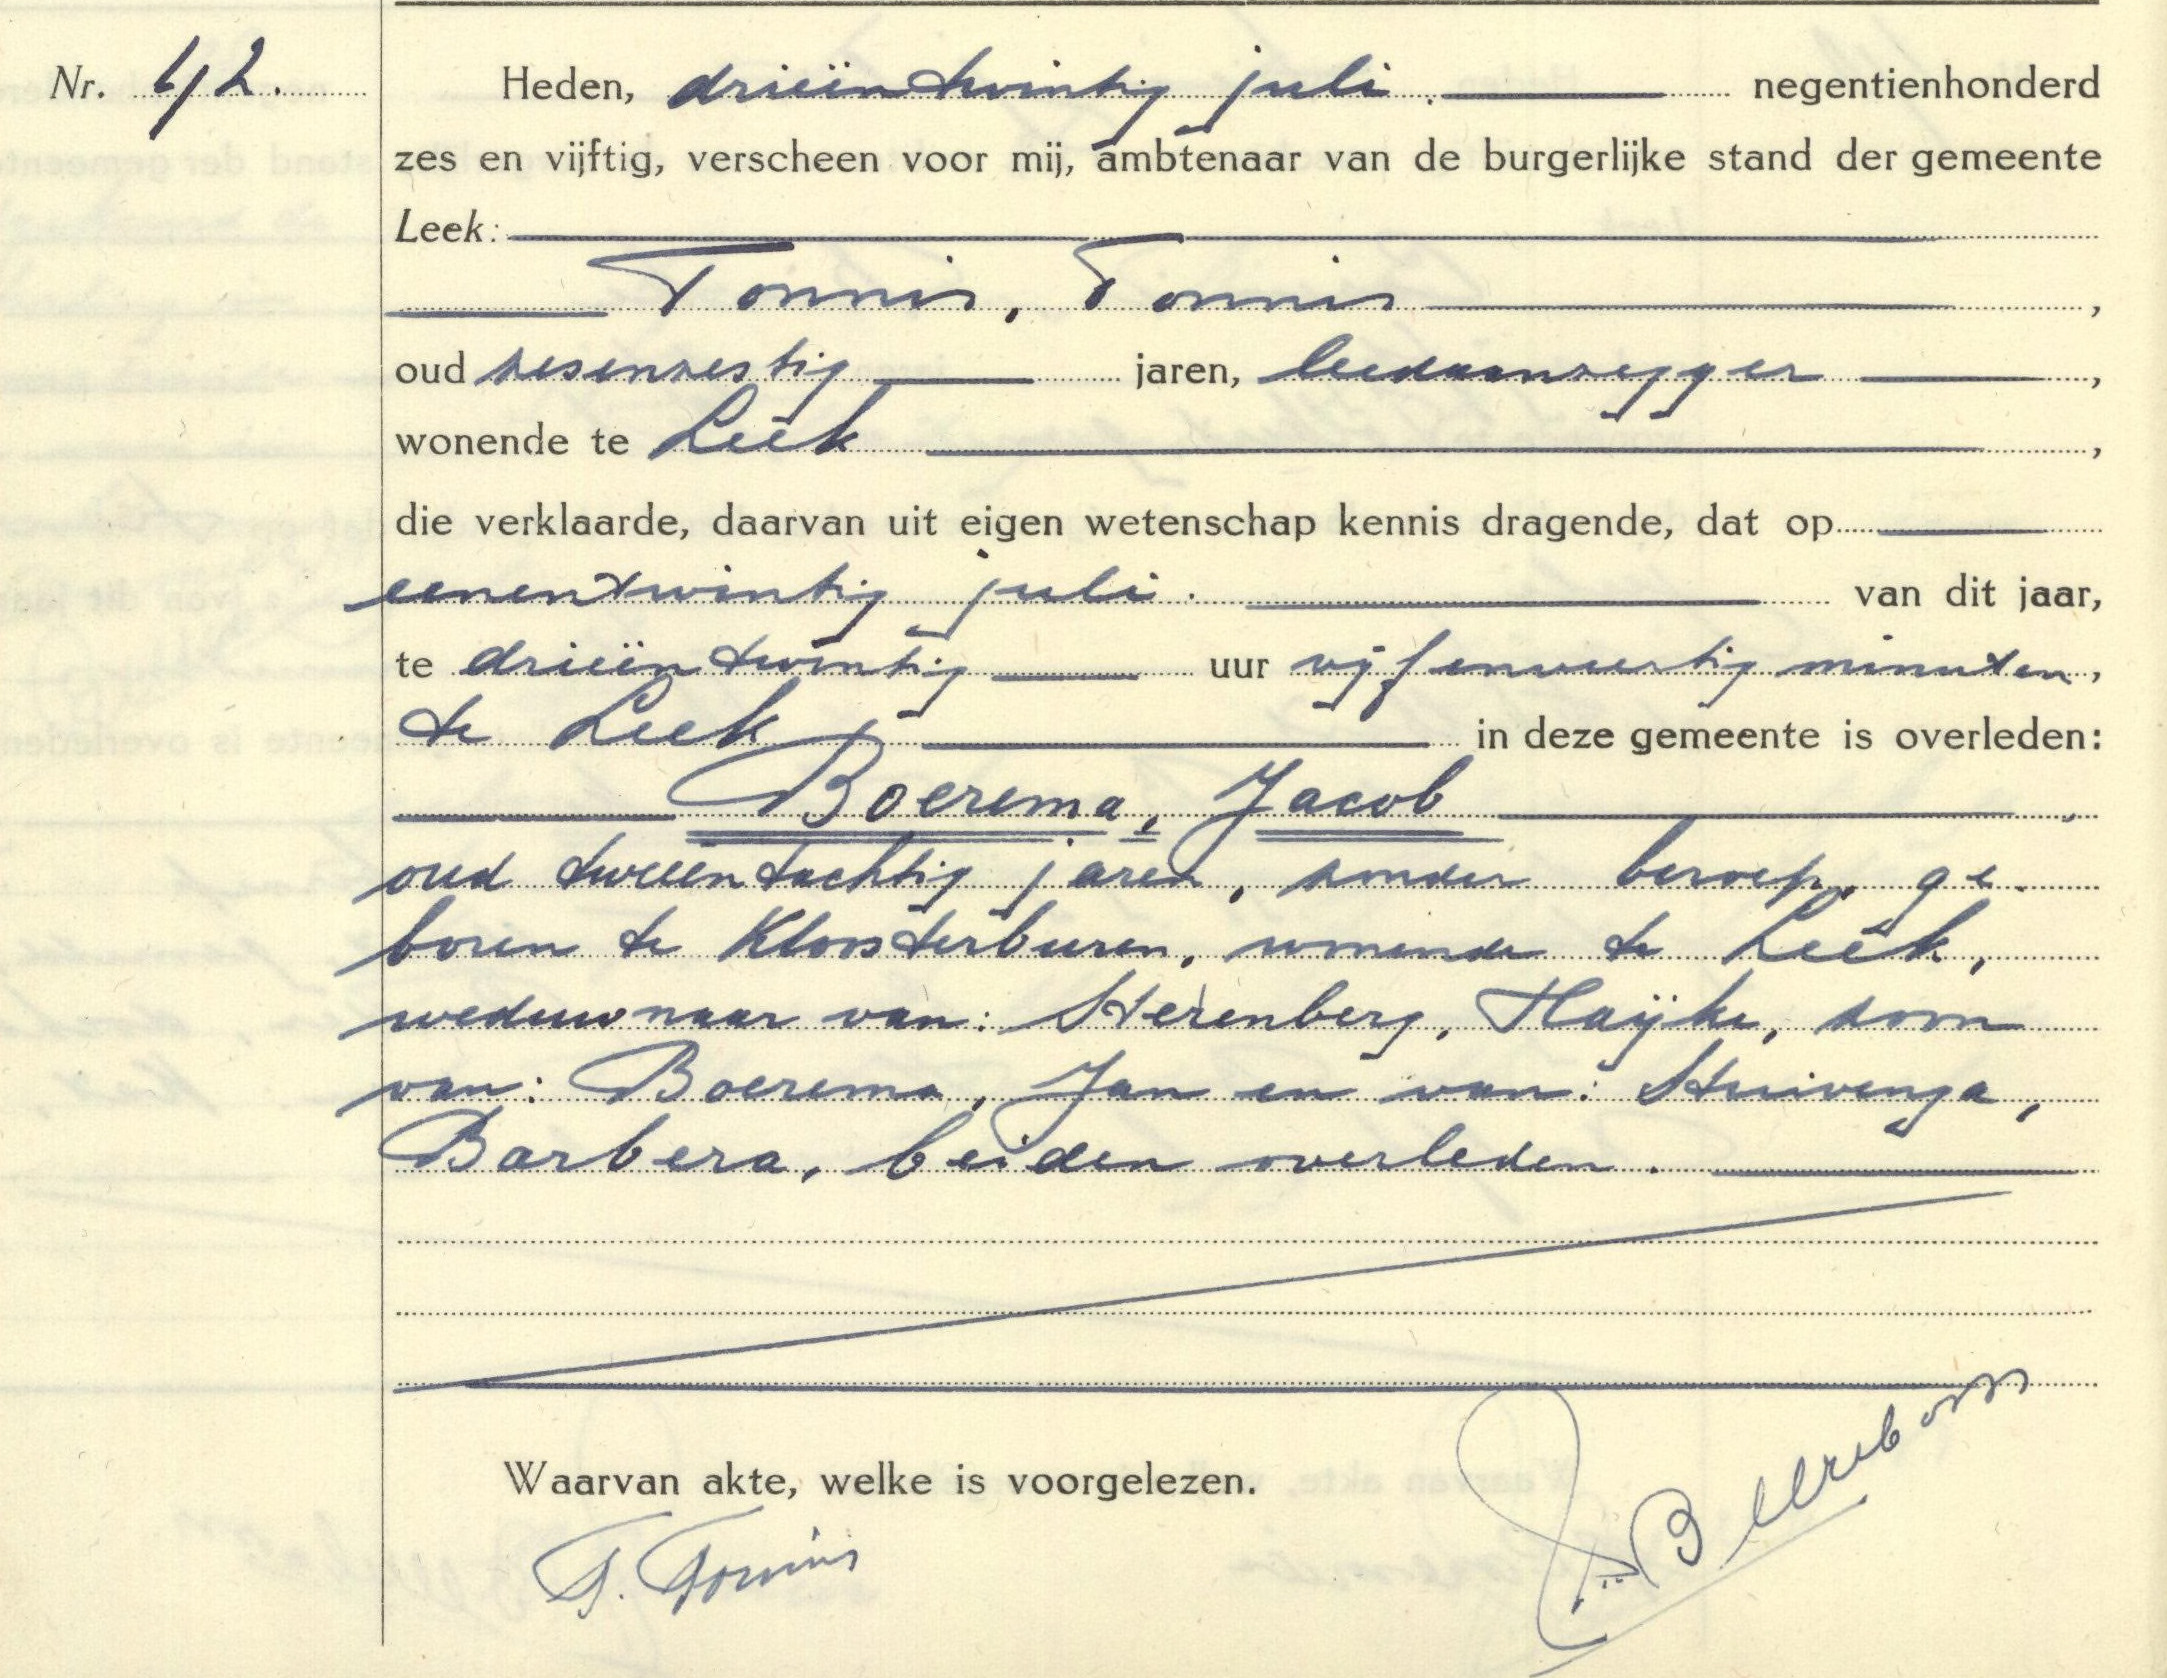 Nr. 42.
Heden, drieëntwintig juli. negentienhonderd
zes en vijftig, verscheen voor mij, ambtenaar van de burgerlijke stand der gemeente
Leek:
Tonnis, Tonnis,
oud zesenzestig jaren, leedaanzegger,
wonende te Leek,
die verklaarde, daarvan uit eigen wetenschap kennis dragende, dat op
eenentwintig juli. van dit jaar,
te drieëntwintig uur vijfenveertig minuten,
te Leek in deze gemeente is overleden:
Boerema, Jacob,
oud tweeëntachtig jaren, zonder beroep, ge-
boren te Kloosterburen, wonende te Leek,
weduwnaar van: Sterenberg, Haijke, zoon
van: Boerema, Jan en van: Stuivenga,
Barbera, beiden overleden.
Waarvan akte, welke is voorgelezen.
T. Tonnis